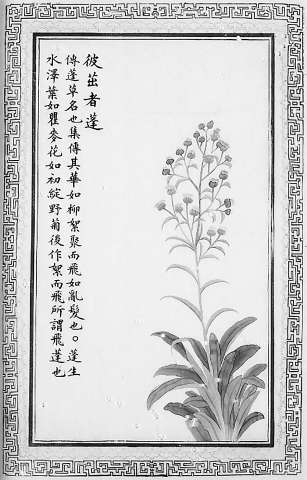 彼茁者蓬
傳蓬草名也集傳其華如柳絮聚而飛如亂髮也○蓬生
水澤葉如瞿麥花如初綻野菊後作絮而飛所謂飛蓬也